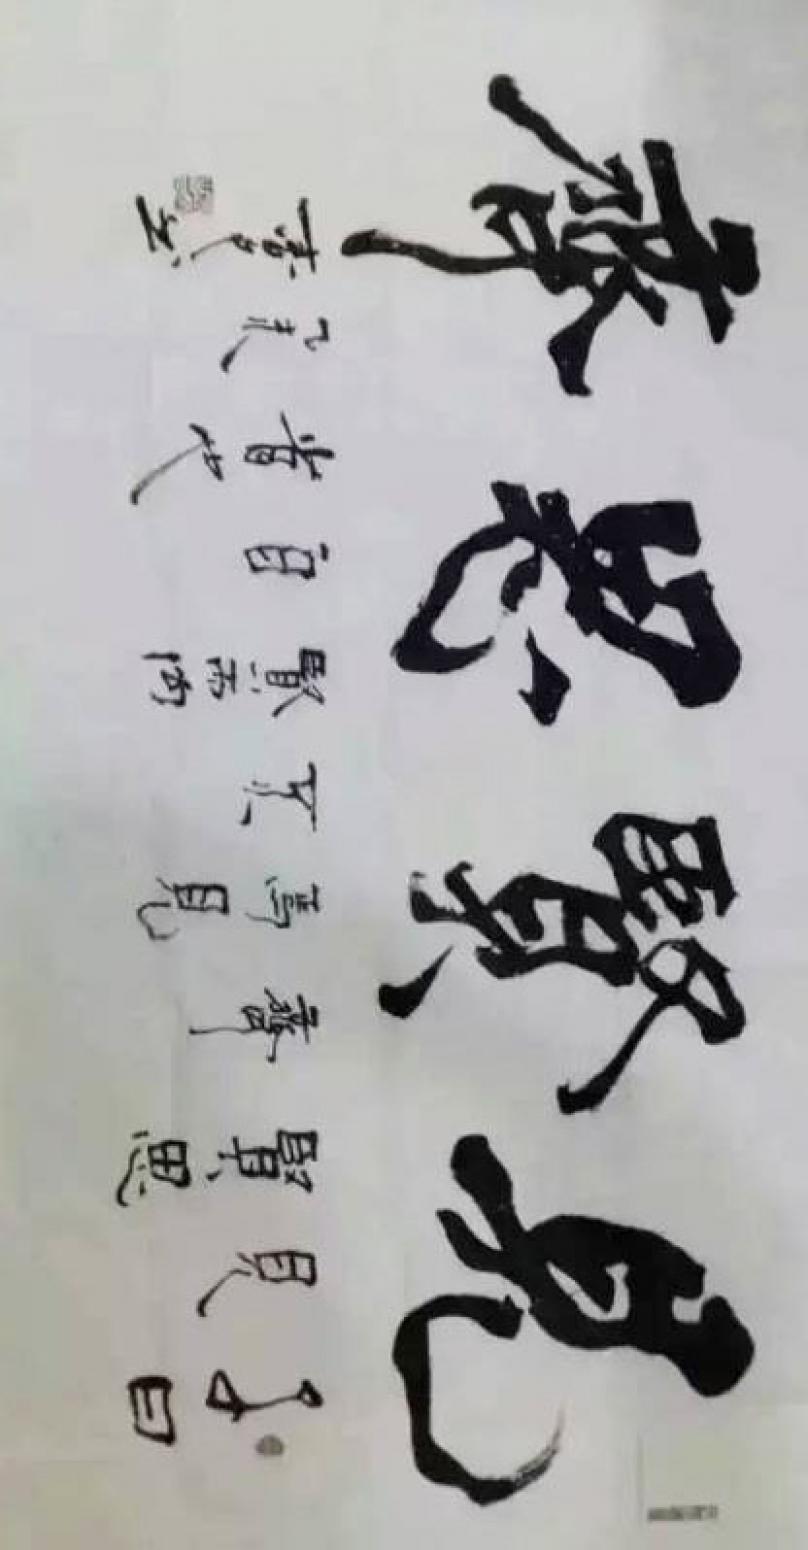 見賢思齊
子曰
見
賢思
齊
焉見
不
賢而内
自
省也
乙未
书